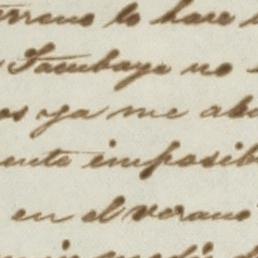 terreno lo hace
Tacubaya no
os ya me abu
ente imposib
en el verano